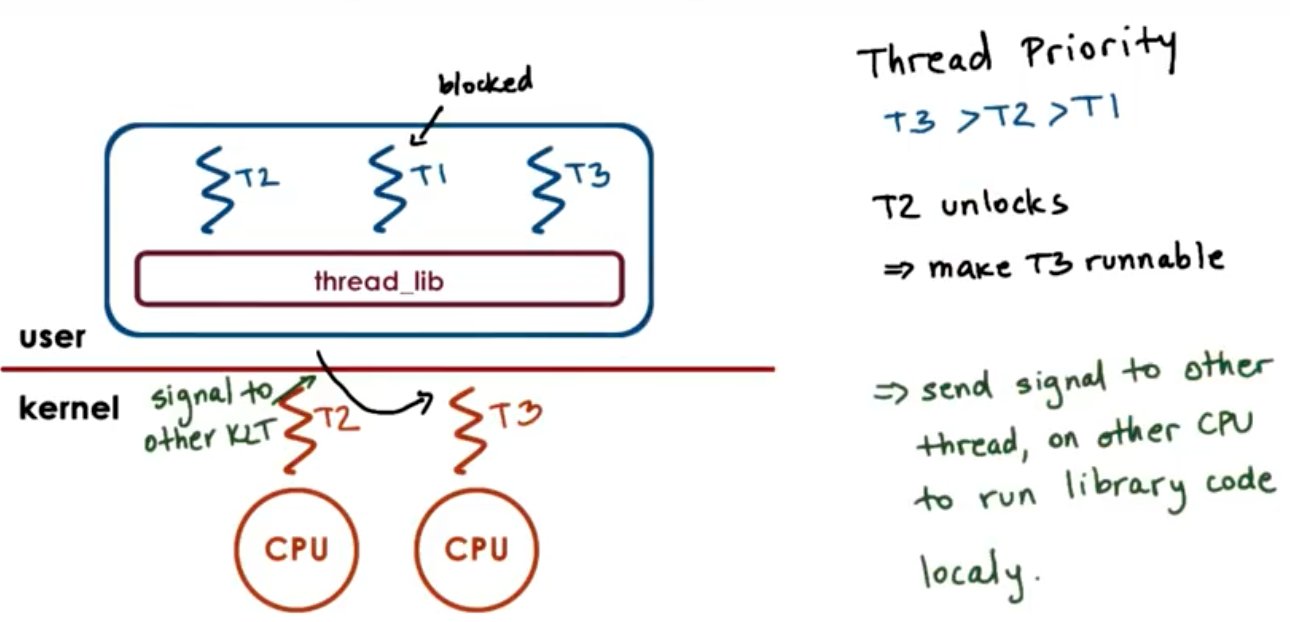 blocked
T2
T1
T3
thread_lib
user
kernel
signal to
other KLT
T2
T3
CPU
CPU
Thread Priority
T3 > T2 > T1
T2 unlocks
⇒ make T3 runnable
⇒ send signal to other
thread, on other CPU
to run library code
localy.